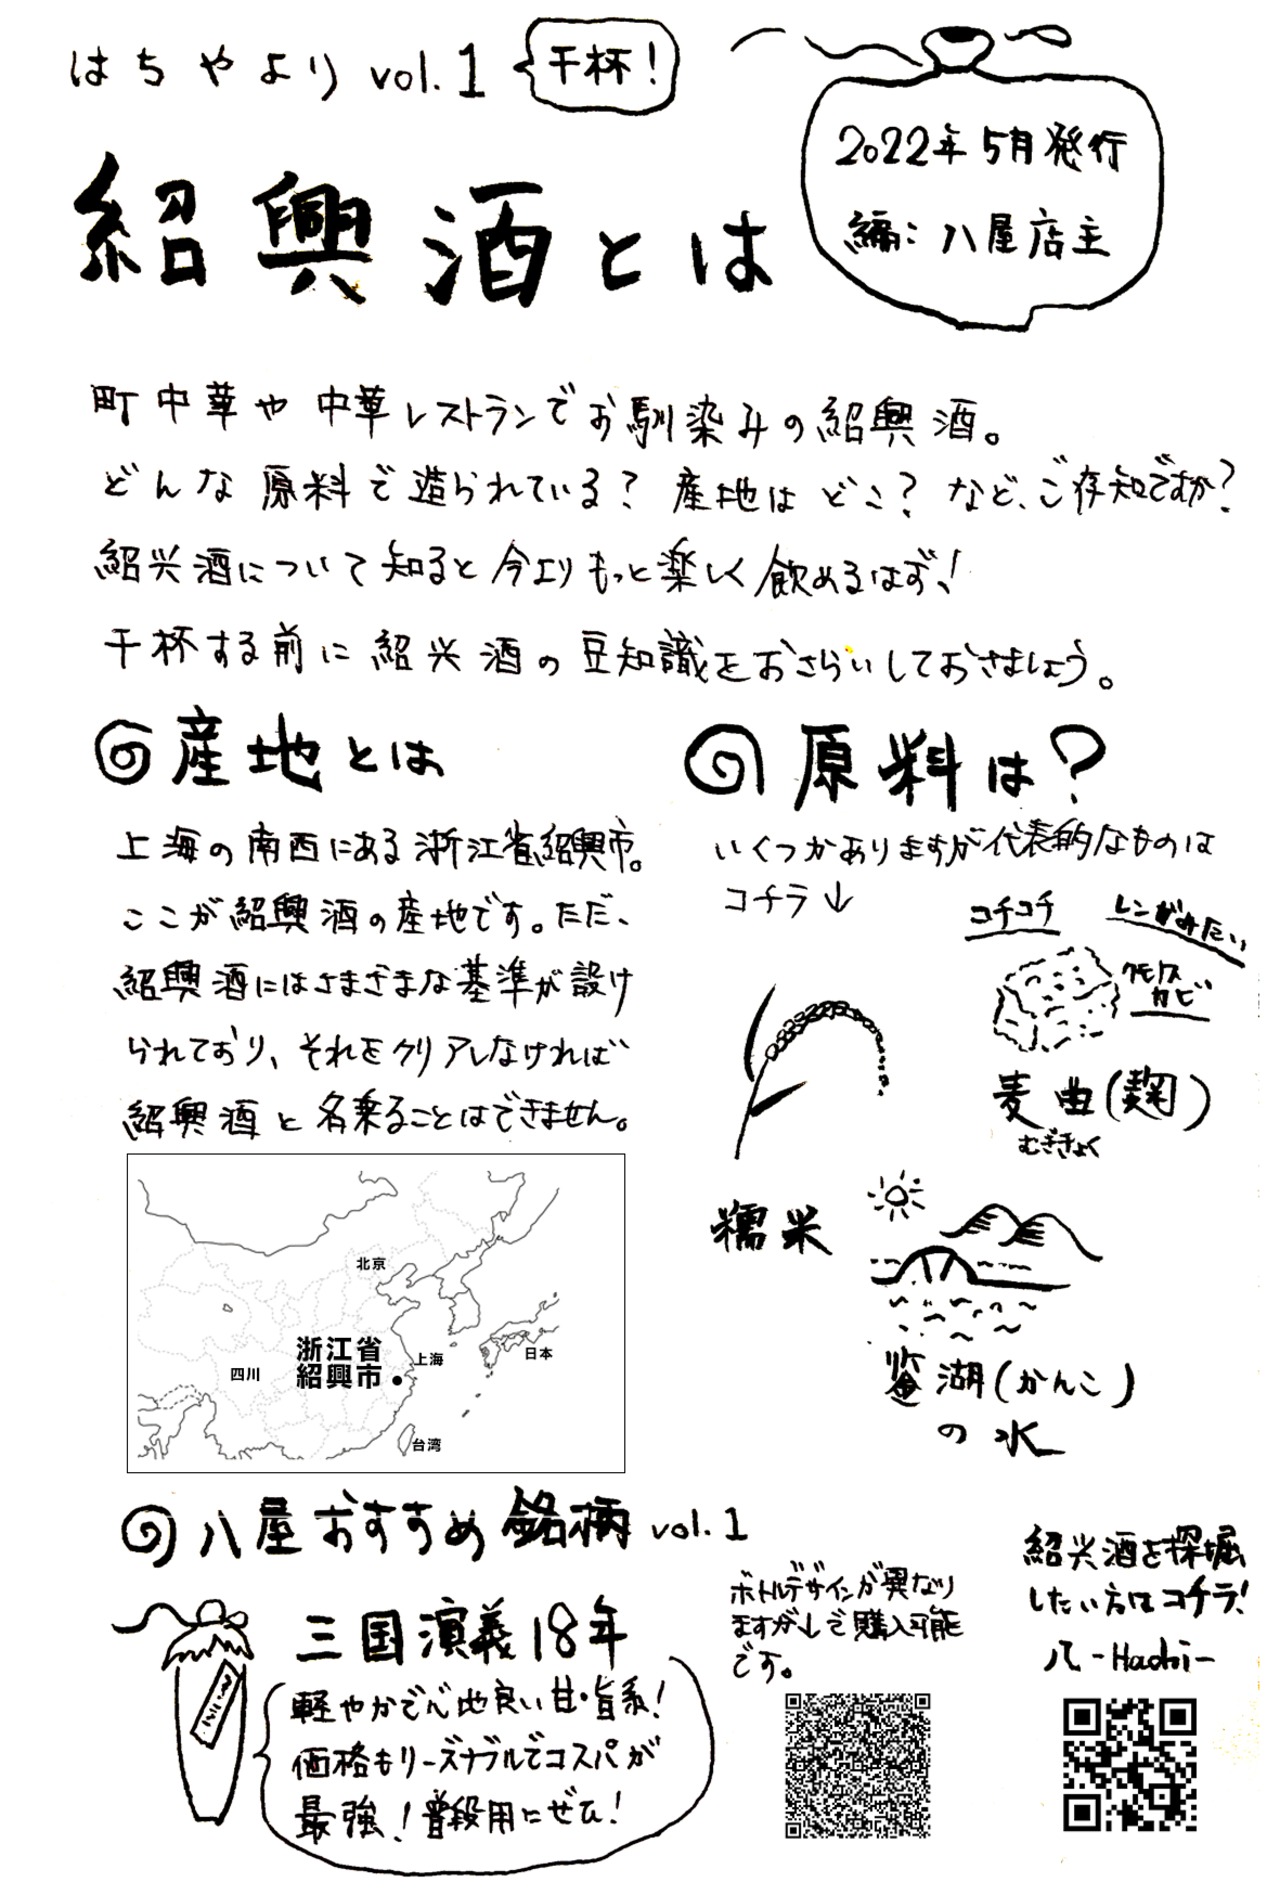 はちやより vol.1
干杯!
2022年5月発行
編:八屋店主
紹興酒とは
町中華や中華レストランでお馴染みの紹興酒。
どんな原料で造られている?産地はどこ?など、ご存知ですか?
紹兴酒について知ると今よりもっと楽しく飲めるはず!
干杯する前に紹兴酒の豆知識をおさらいしておきましょう。
産地とは
上海の南西にある浙江省紹興市。
ここが紹興酒の産地です。ただ、
紹興酒にはさまざまな基準が設け
られており、それをクリアしなければ
紹興酒と名乗ることはできません。
北京
浙江省
紹興市
上海
四川
日本
台湾
原料は?
いくつかありますが代表的なものは
コチラ↓
コチコチ
レンガみたい
クモノス
カビ
麦曲(麹)
むぎきょく
糯米
鉴湖(かんこ)
の水
八屋おすすめ銘柄 vol.1
三国演義18年
軽やかで心地良い甘・旨系!
価格もリーズナブルでコスパが
最強!普段用にぜひ!
ボトルデザインが異なり
ますが↓で購入可能
です。
紹兴酒を探堀
したい方はコチラ!
八-Hachi-